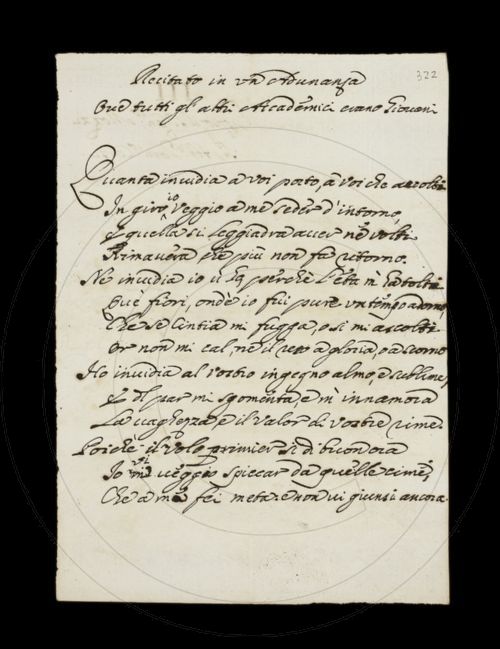 322
Recitato in un'Adunanza
Ove tutti gl'altri Accademici erano Giovani
Quanta invidia a voi porto, a voi che accolti
In giro io Veggio a me seder d'intorno,
E quella sì leggiadra aver ne' volti
Primavera che più non fa ritorno.
Ne invidia io ho perchè l'età m'ha tolti
Que' fiori, onde io fui pure un tempo adorno
Che se Cintia mi fugga, o si mi ascolti
Or non mi cal, ne il reco a gloria, o a scorno
Ho invidia al vostro ingegno almo, e sublime,
E par mi sgomenta, e m'innamora
La vaghezza e il valor di vostre rime.
Poichè il volo primier sì di buon'ora
Io vi veggio spiccar da quelle cime,
Che a me fei meta: e non vi giunsi ancora